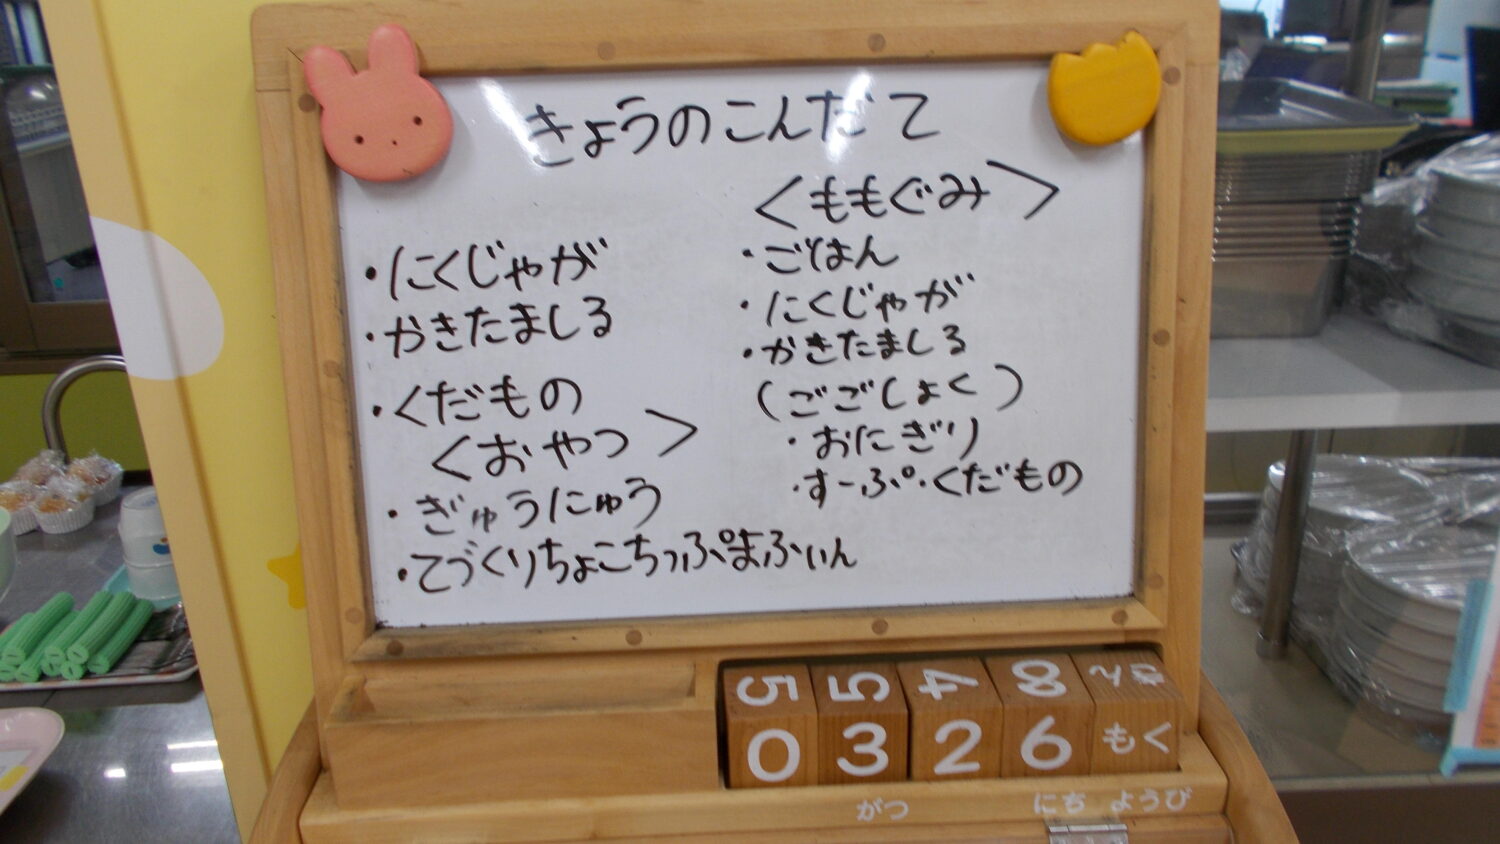 きょうのこんだて
・にくじゃが
・かきたましる
・くだもの
<おやつ>
・ぎゅうにゅう
・てづくりちょこちっぷまふぃん
<ももぐみ>
・ごはん
・にくじゃが
・かきたましる
(ごごしょく)
・おにぎり
・すーぷ・くだもの
5 5 4 8
0 3 2 6 もく
がつ にち ようび